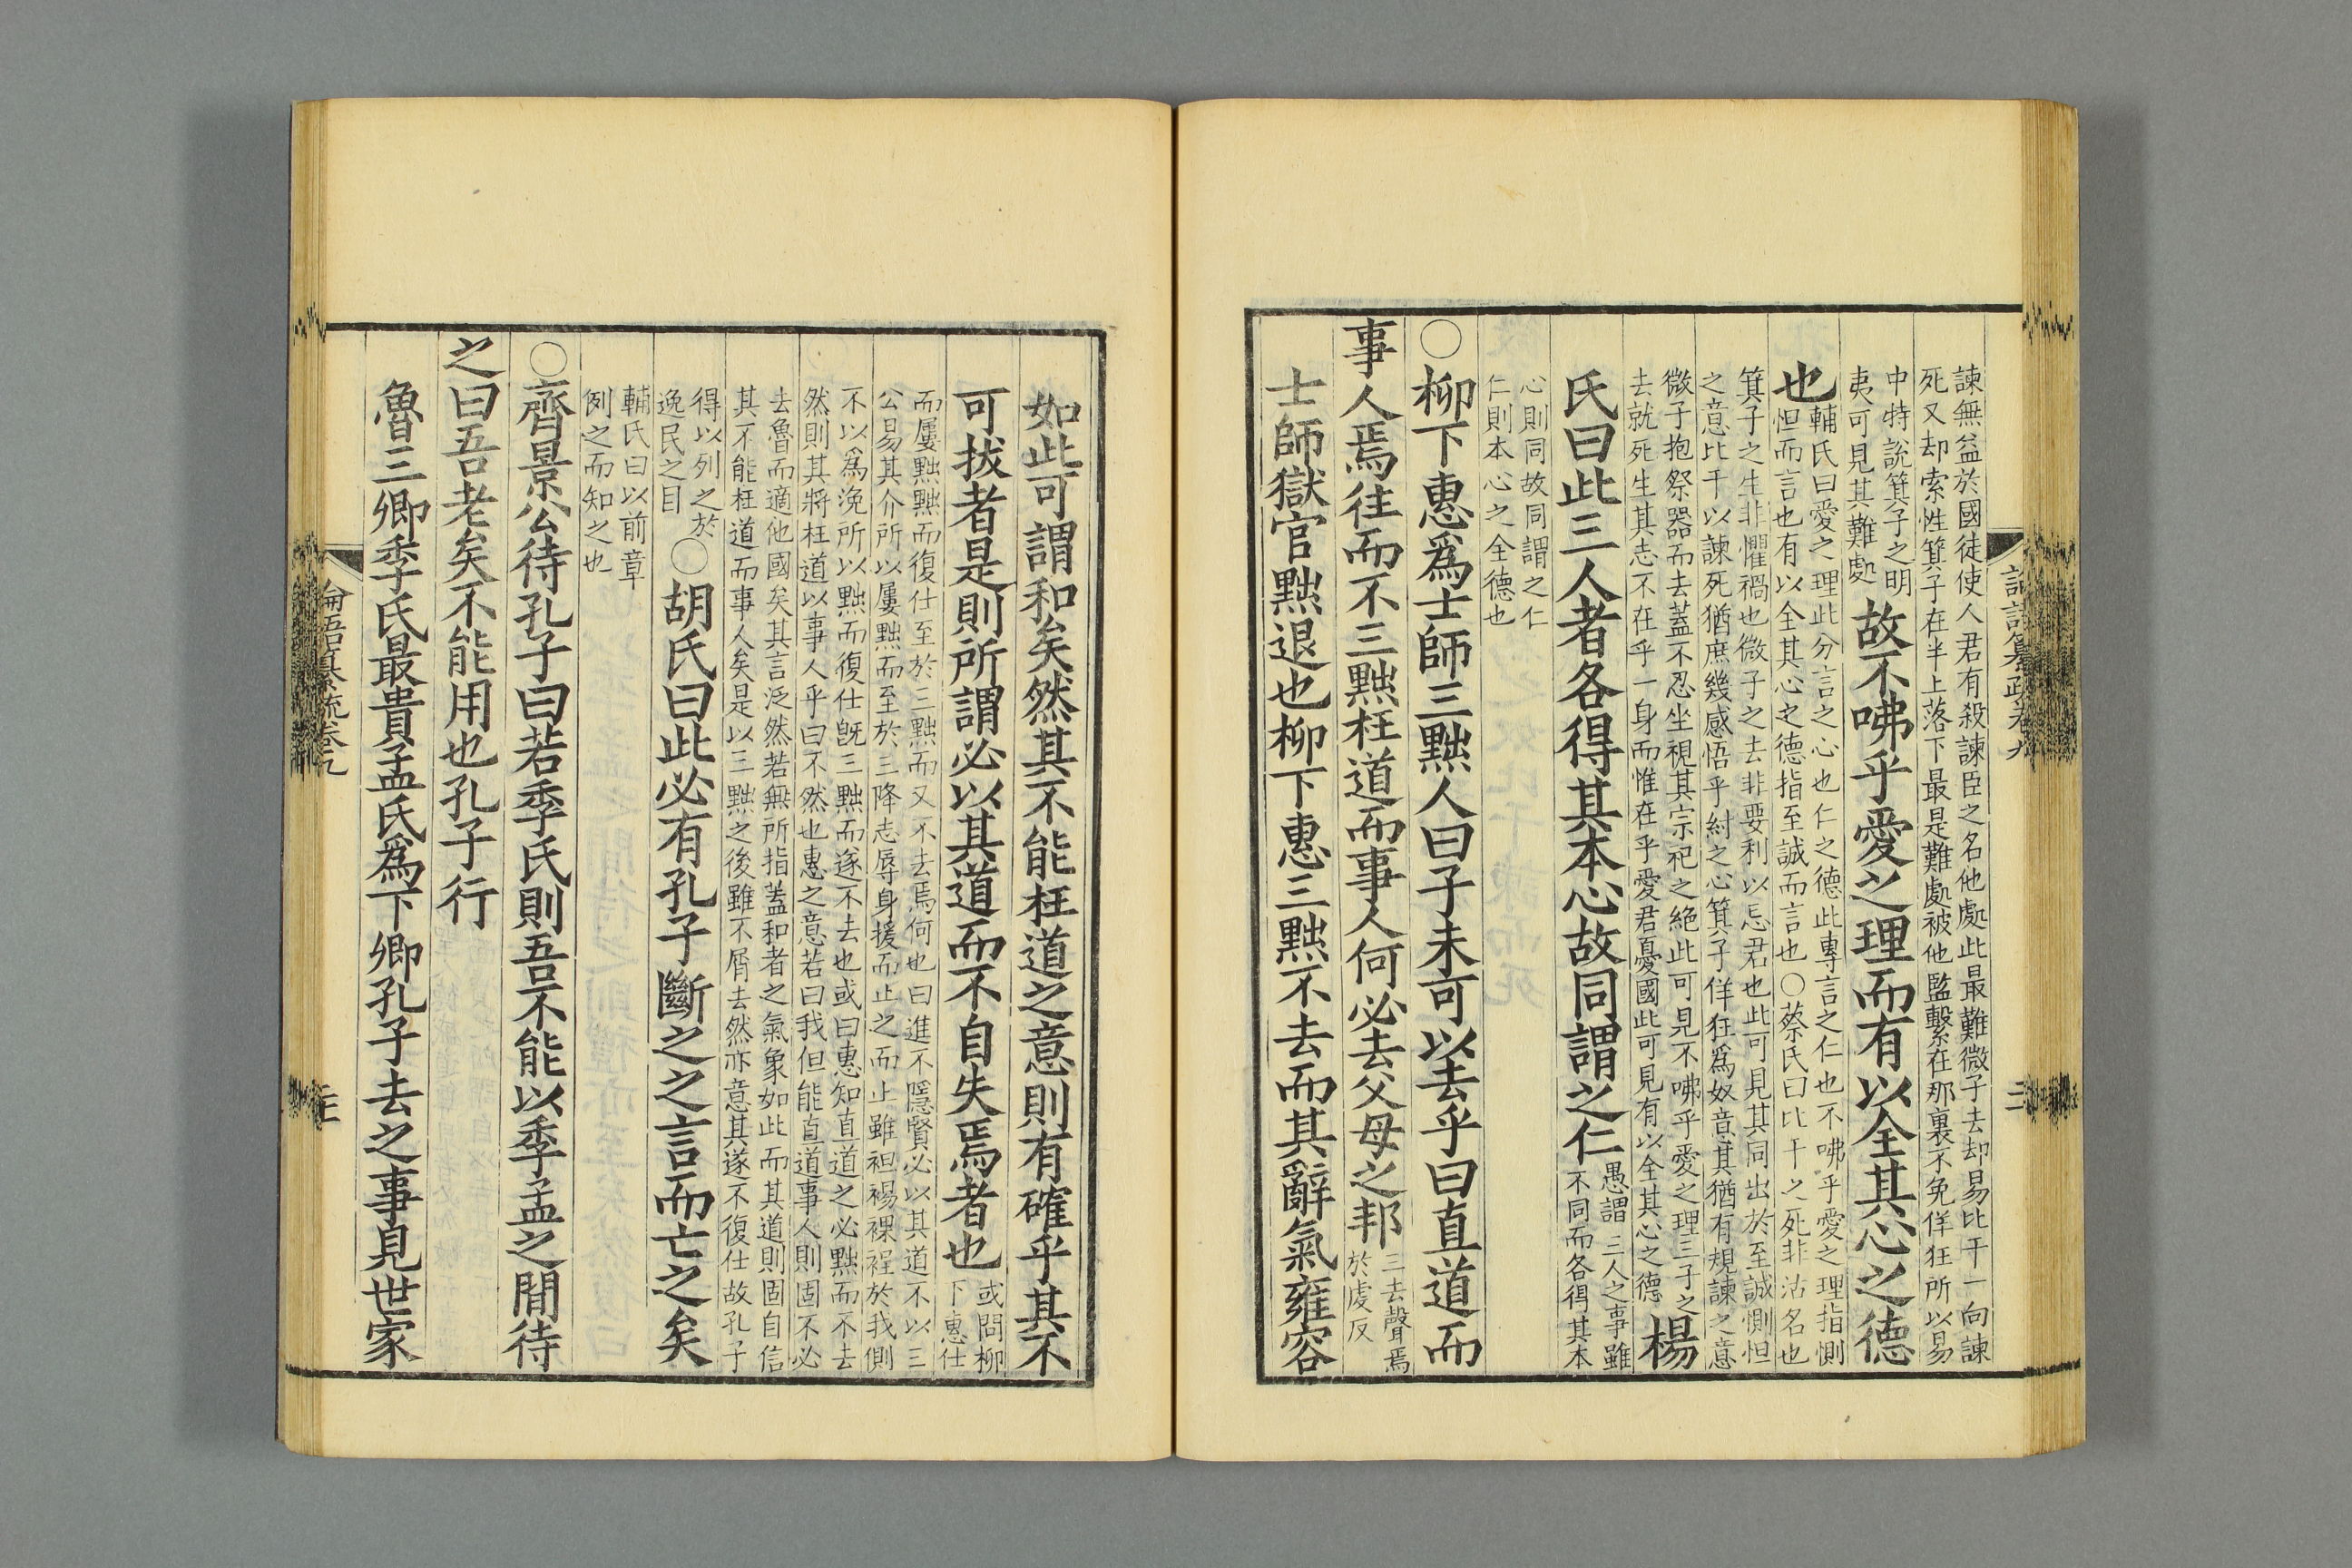 諫無益於國徒使人君有殺諫臣之名他處此最難微子去却易比干一向諫
死又却索性箕子在半上落下最是難處被他監繫在那裏不免佯狂所以易
中特說箕子之明
夷可見其難處
故不咈乎愛之理而有以全其心之德
也
輔氏曰愛之理此分言之心也仁之德此專言之仁也不咈乎愛之理指惻
怛而言也有以全其心之德指至誠而言也○蔡氏曰比干之死非沽名也
箕子之生非懼禍也微子之去非要利以忘君也此可見其同出於至誠惻怛
之意比干以諫死猶庶幾感悟乎紂之心箕子佯狂爲奴音其猶有規諫之意
微子抱祭器而去蓋不忍坐視其宗祀之絶此可見不咈乎愛之理三子之
去就死生其志不在乎一身而惟在乎愛君憂國此可見有以全其心之德
楊
氏曰此三人者各得其本心故同謂之仁
愚謂三人之事雖
不同而各得其本
心則同故同謂之仁
仁則本心之全德也
○柳下惠爲士師三黜人曰子未可以去乎曰直道而
事人焉往而不三黜枉道而事人何必去父母之邦
三去聲焉
於虔反
士師獄官黜退也柳下惠三黜不去而其辭氣雍容
如此可謂和矣然其不能枉道之意則有確乎其不
可拔者是則所謂必以其道而不自失焉者也
或問柳
下惠仕
而屢黜黜而復仕至於三黜而又不去焉何也曰進不隱賢必以其道不以三
公易其介所以屢黜而至於三降志辱身援而止之而止雖袒裼裸裎於我側
不以爲浼所以黜而復仕旣三黜而遂不去也或曰惠知直道之必黜而不去
然則其將枉道以事人乎曰不然也惠之意若曰我但能直道事人則固不必
去魯而適他國矣其言泛然若無所指蓋和者之氣象如此而其道則固自信
其不能枉道而事人矣是以三黜之後雖不屑去然亦意其遂不復仕故孔子
得以列之於
逸民之目
○胡氏曰此必有孔子斷之之言而亡之矣
輔氏曰以前章
例之而知之也
○齊景公待孔子曰若季氏則吾不能以季孟之間待
之曰吾老矣不能用也孔子行
魯三卿季氏最貴孟氏爲下卿孔子去之事見世家